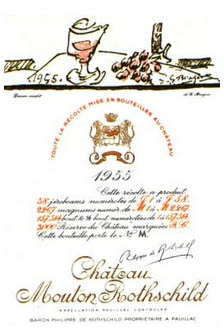 1955.
G. Braque
TOUTE LA RÉCOLTE MISE EN BOUTEILLES AU CHÂTEAU
1955
Cette récolte a produit
58 jéroboams numérotés de
2267 magnums numér. de
bout. & ½ bout. numérotées de 1 à
2000 Réserve du Château marquées R.C.
Cette bouteille porte le Nº M.
Château
Mouton Rothschild
APPELLATION PAUILLAC CONTRÔLÉE
BARON PHILIPPE DE ROTHSCHILD PROPRIÉTAIRE A PAUILLAC